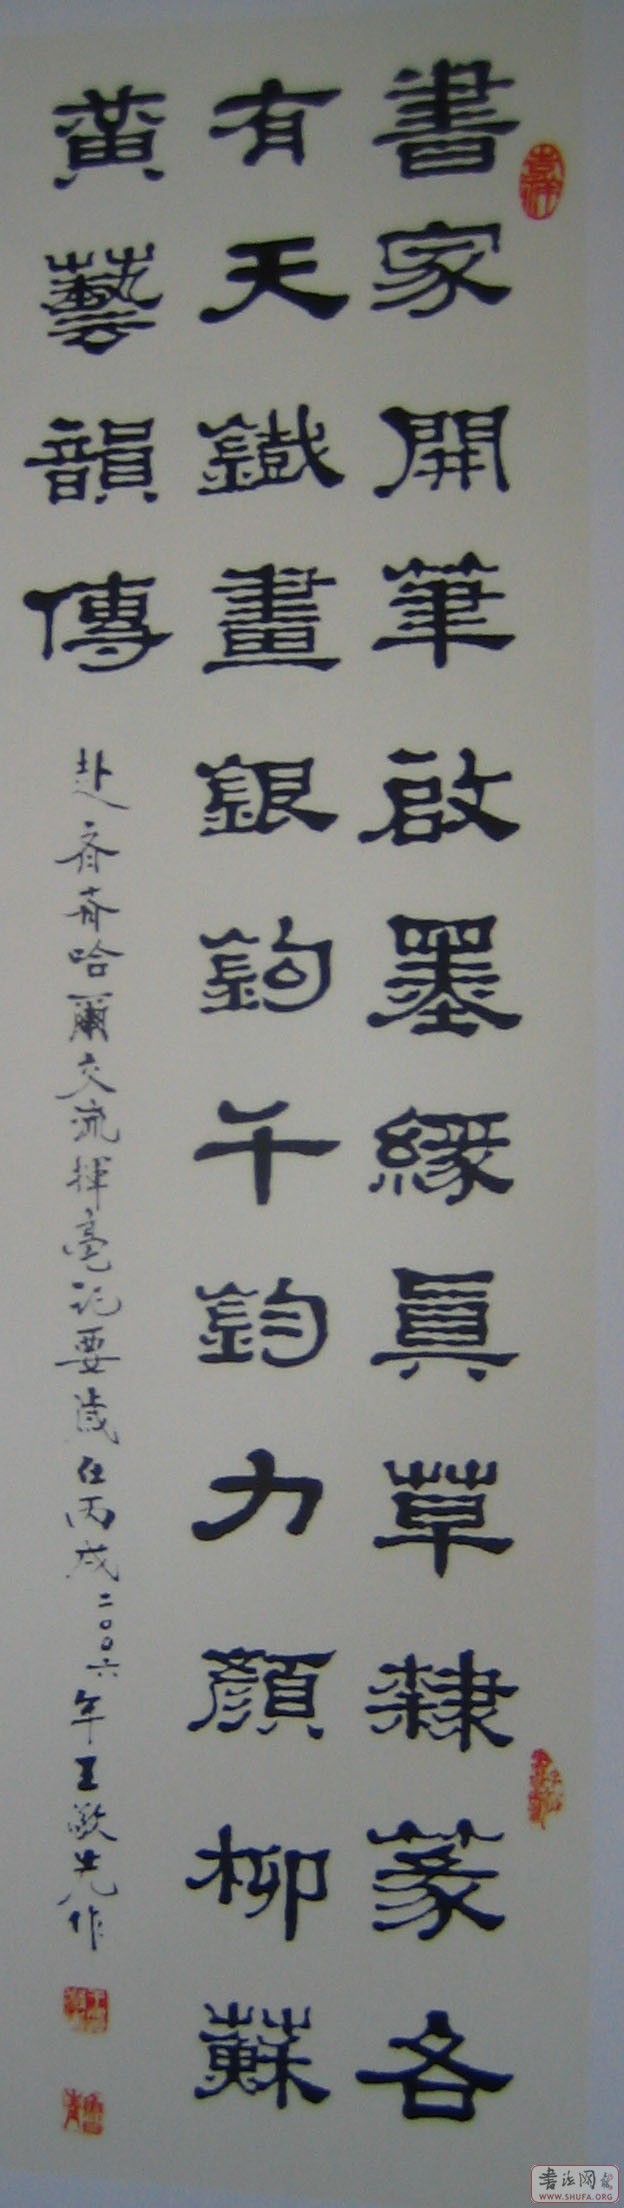 書家開筆啟墨緣真草隸篆各
有天鐵畫銀鉤千鈞力顏柳蘇
黃藝韻傳
赴齊齊哈爾交流揮毫記要歲在丙戌二〇〇六年王敬先作
書法网
WWW.SHUFA.ORG